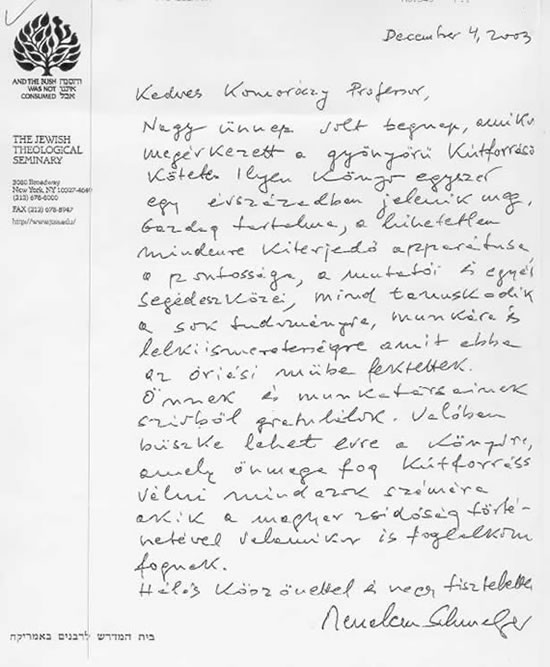 December 4, 2003
AND THE BUSH והסנה
WAS NOT איננו
CONSUMED אכל
THE JEWISH
THEOLOGICAL
SEMINARY
3080 Broadway
New York, NY 10027-4649
(212) 678-8000
FAX (212) 678-8947
Kedves Komoróczy Professor,
Nagy ünnep volt tegnap, amikor
megérkezett a gyönyörű Kútforrás
Kötete. Ilyen Könyv egyszer
egy évszázadban jelenik meg.
Gazdag tartalma, a hihetetlen
mindenre Kiterjedő apparátusa
a pontossága, a mutatói és egyéb
segédeszközei, mind tanuskodik
a sok tudományra, munkára és
lelkiismeretességre amit ebba
az óriási műbe fektettek.
Önnek és munkatársainak
szívből gratulálok. Valóban
büszke lehet erre a Könyvre,
amely önmaga fog Kútforrássá
válni mindazok számára
akik a magyar zsidóság törté-
netével valamikor is foglalkozni
fognak.
Hálás Köszönettel és nagy tisztelettel
Menahem Schmelzer
בית המדרש לרבנים באמריקה